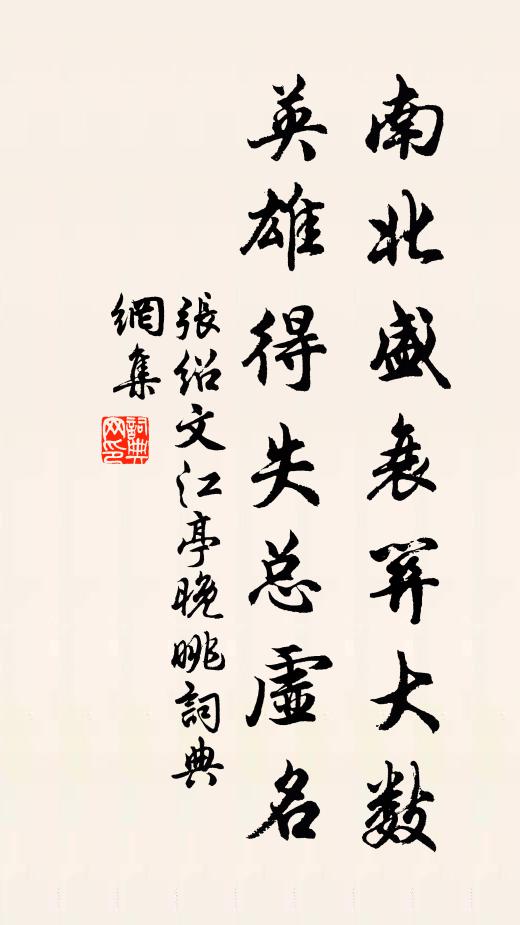 南北盛衰關大数
英雄得失总虛名
張紹文江亭晚眺詞典
網集
詞典网印